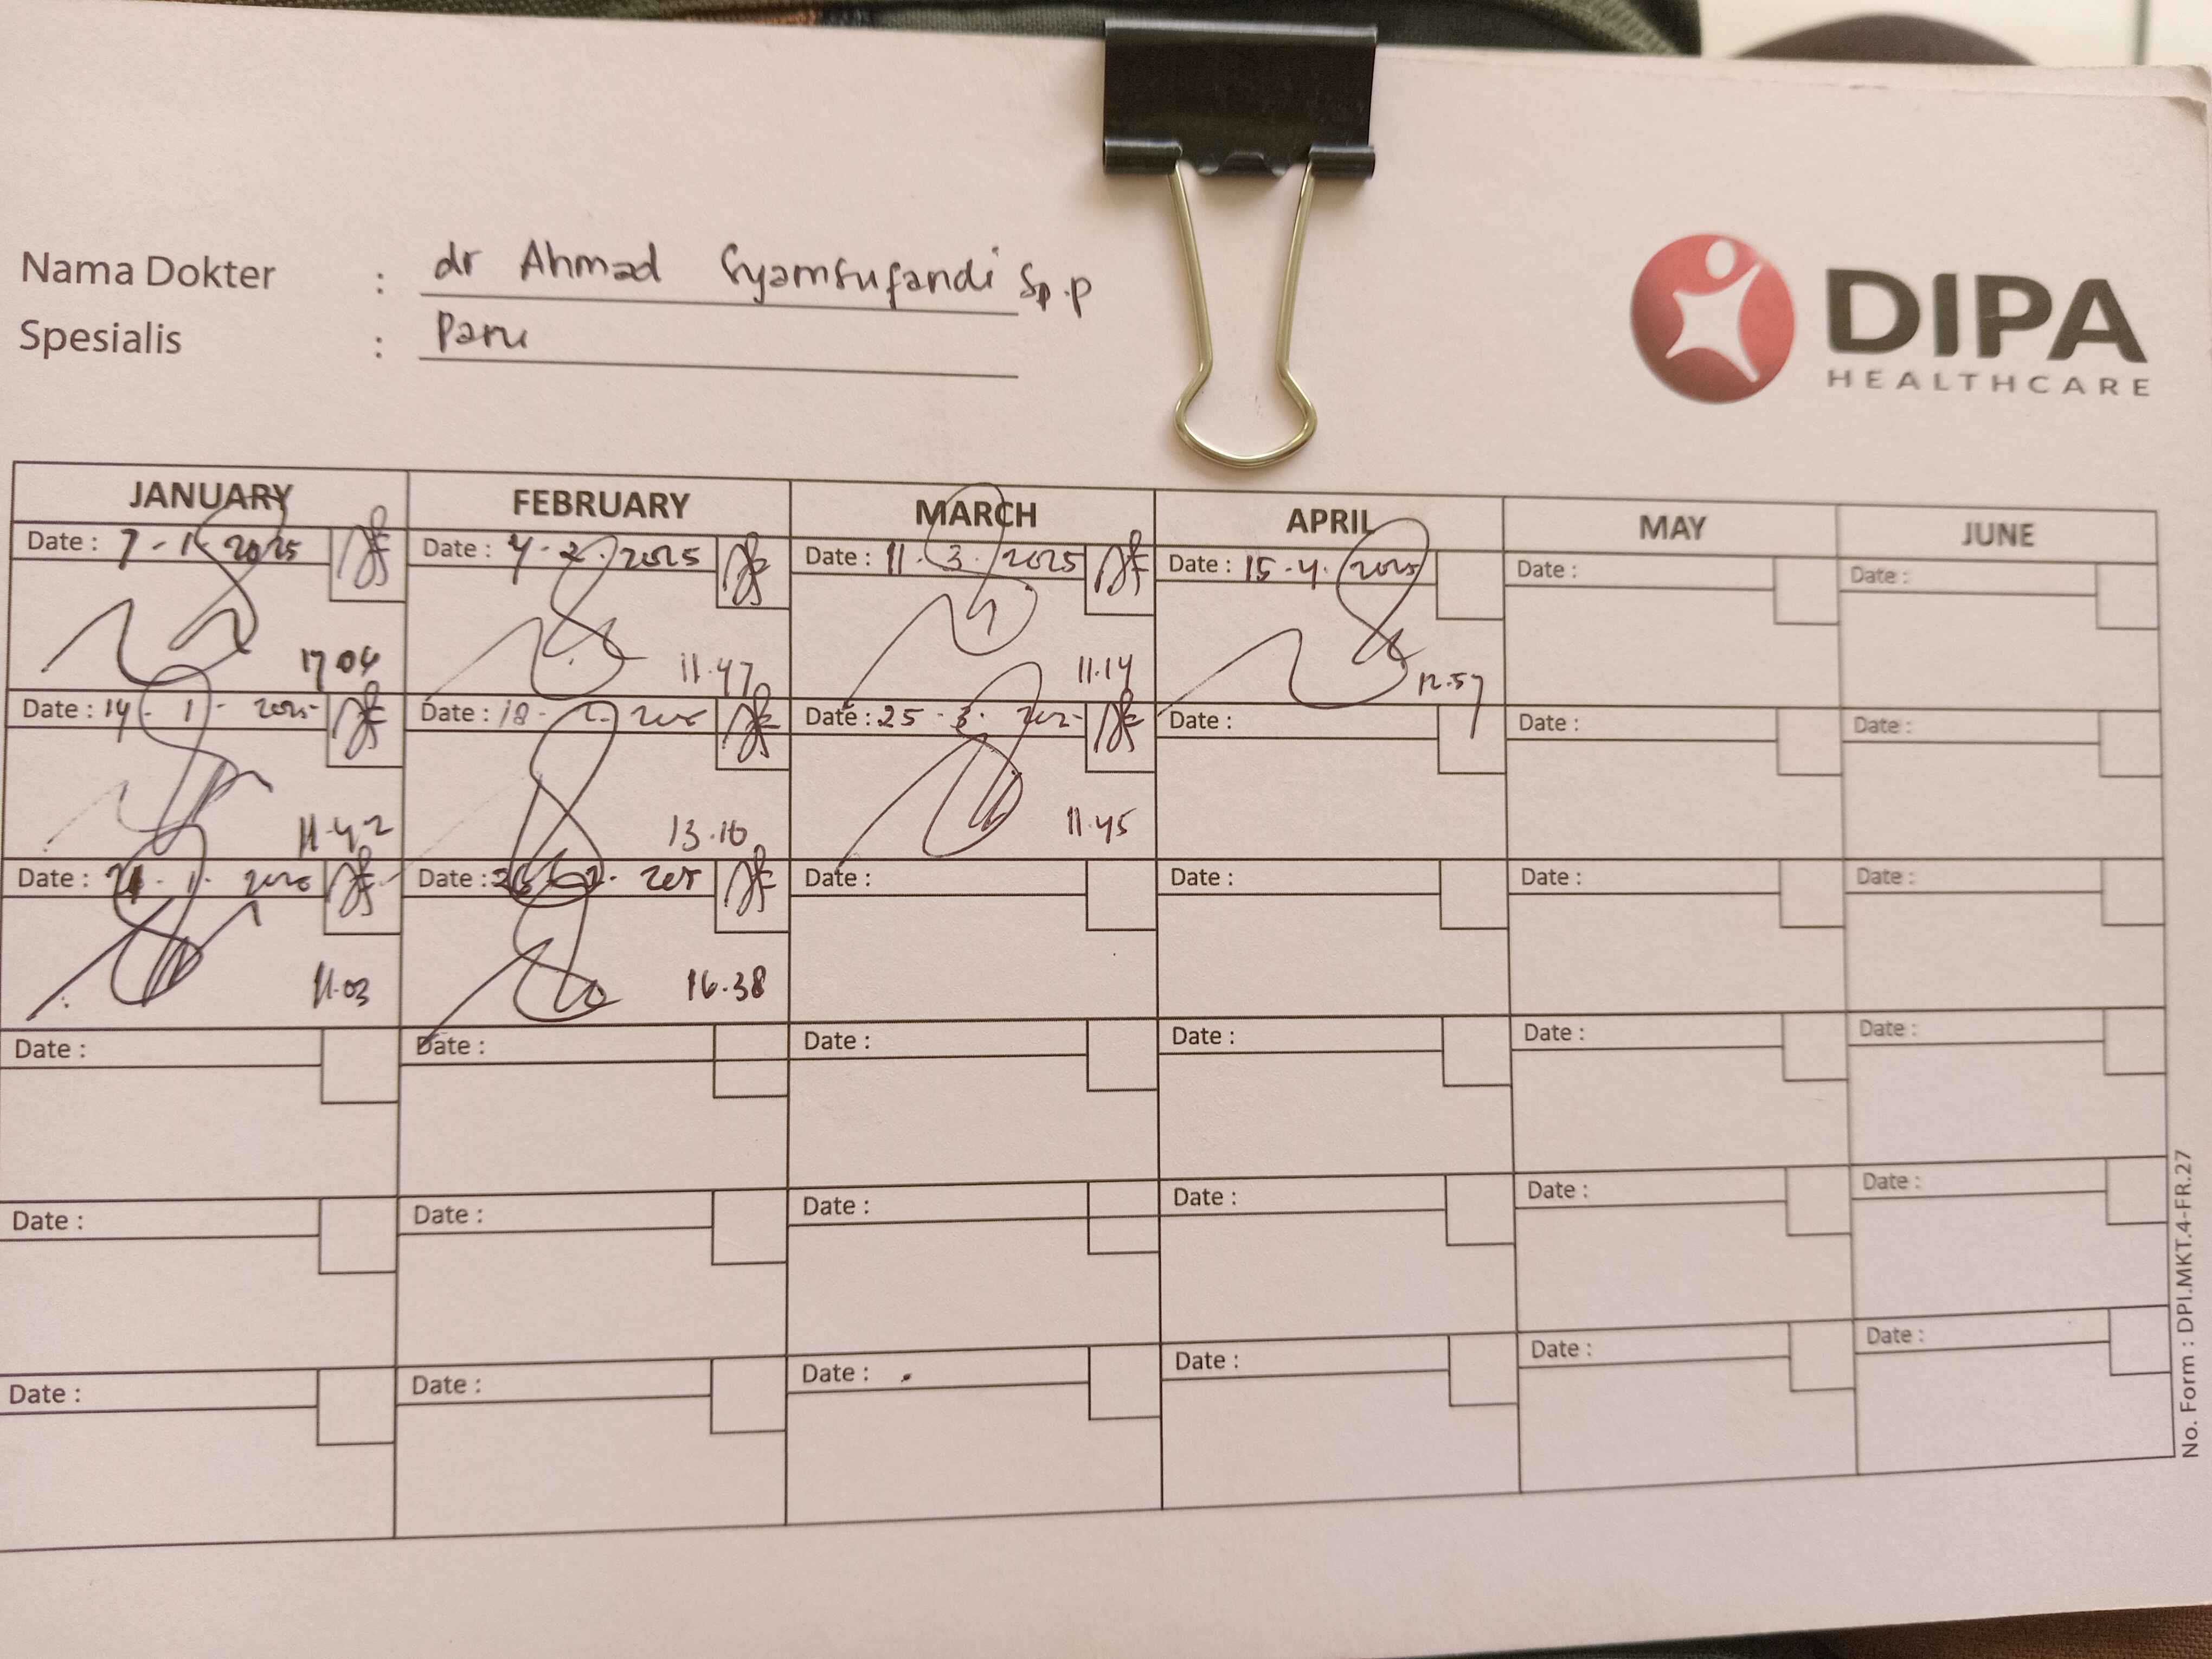 Nama Dokter : dr Ahmad Syamsufandi Sp.P
Spesialis : Paru
DIPA
HEALTHCARE
JANUARY FEBRUARY MARCH APRIL MAY JUNE
Date : 7-1-2025 Date : 4-2-2025 Date : 11-3-2025 Date : 15-4-2025 Date : Date :
17 04 11.47 11.14 12.57
Date : 14-1-2025 Date : 18- Date : 25-3- Date : Date : Date :
11.42 13.10 11.45
Date : Date : Date : Date : Date : Date :
11.03 16.38
Date : Date : Date : Date : Date : Date :
Date : Date : Date : Date : Date : Date :
Date : Date : Date : Date : Date : Date :
No. Form : DPI.MKT.4-FR.27